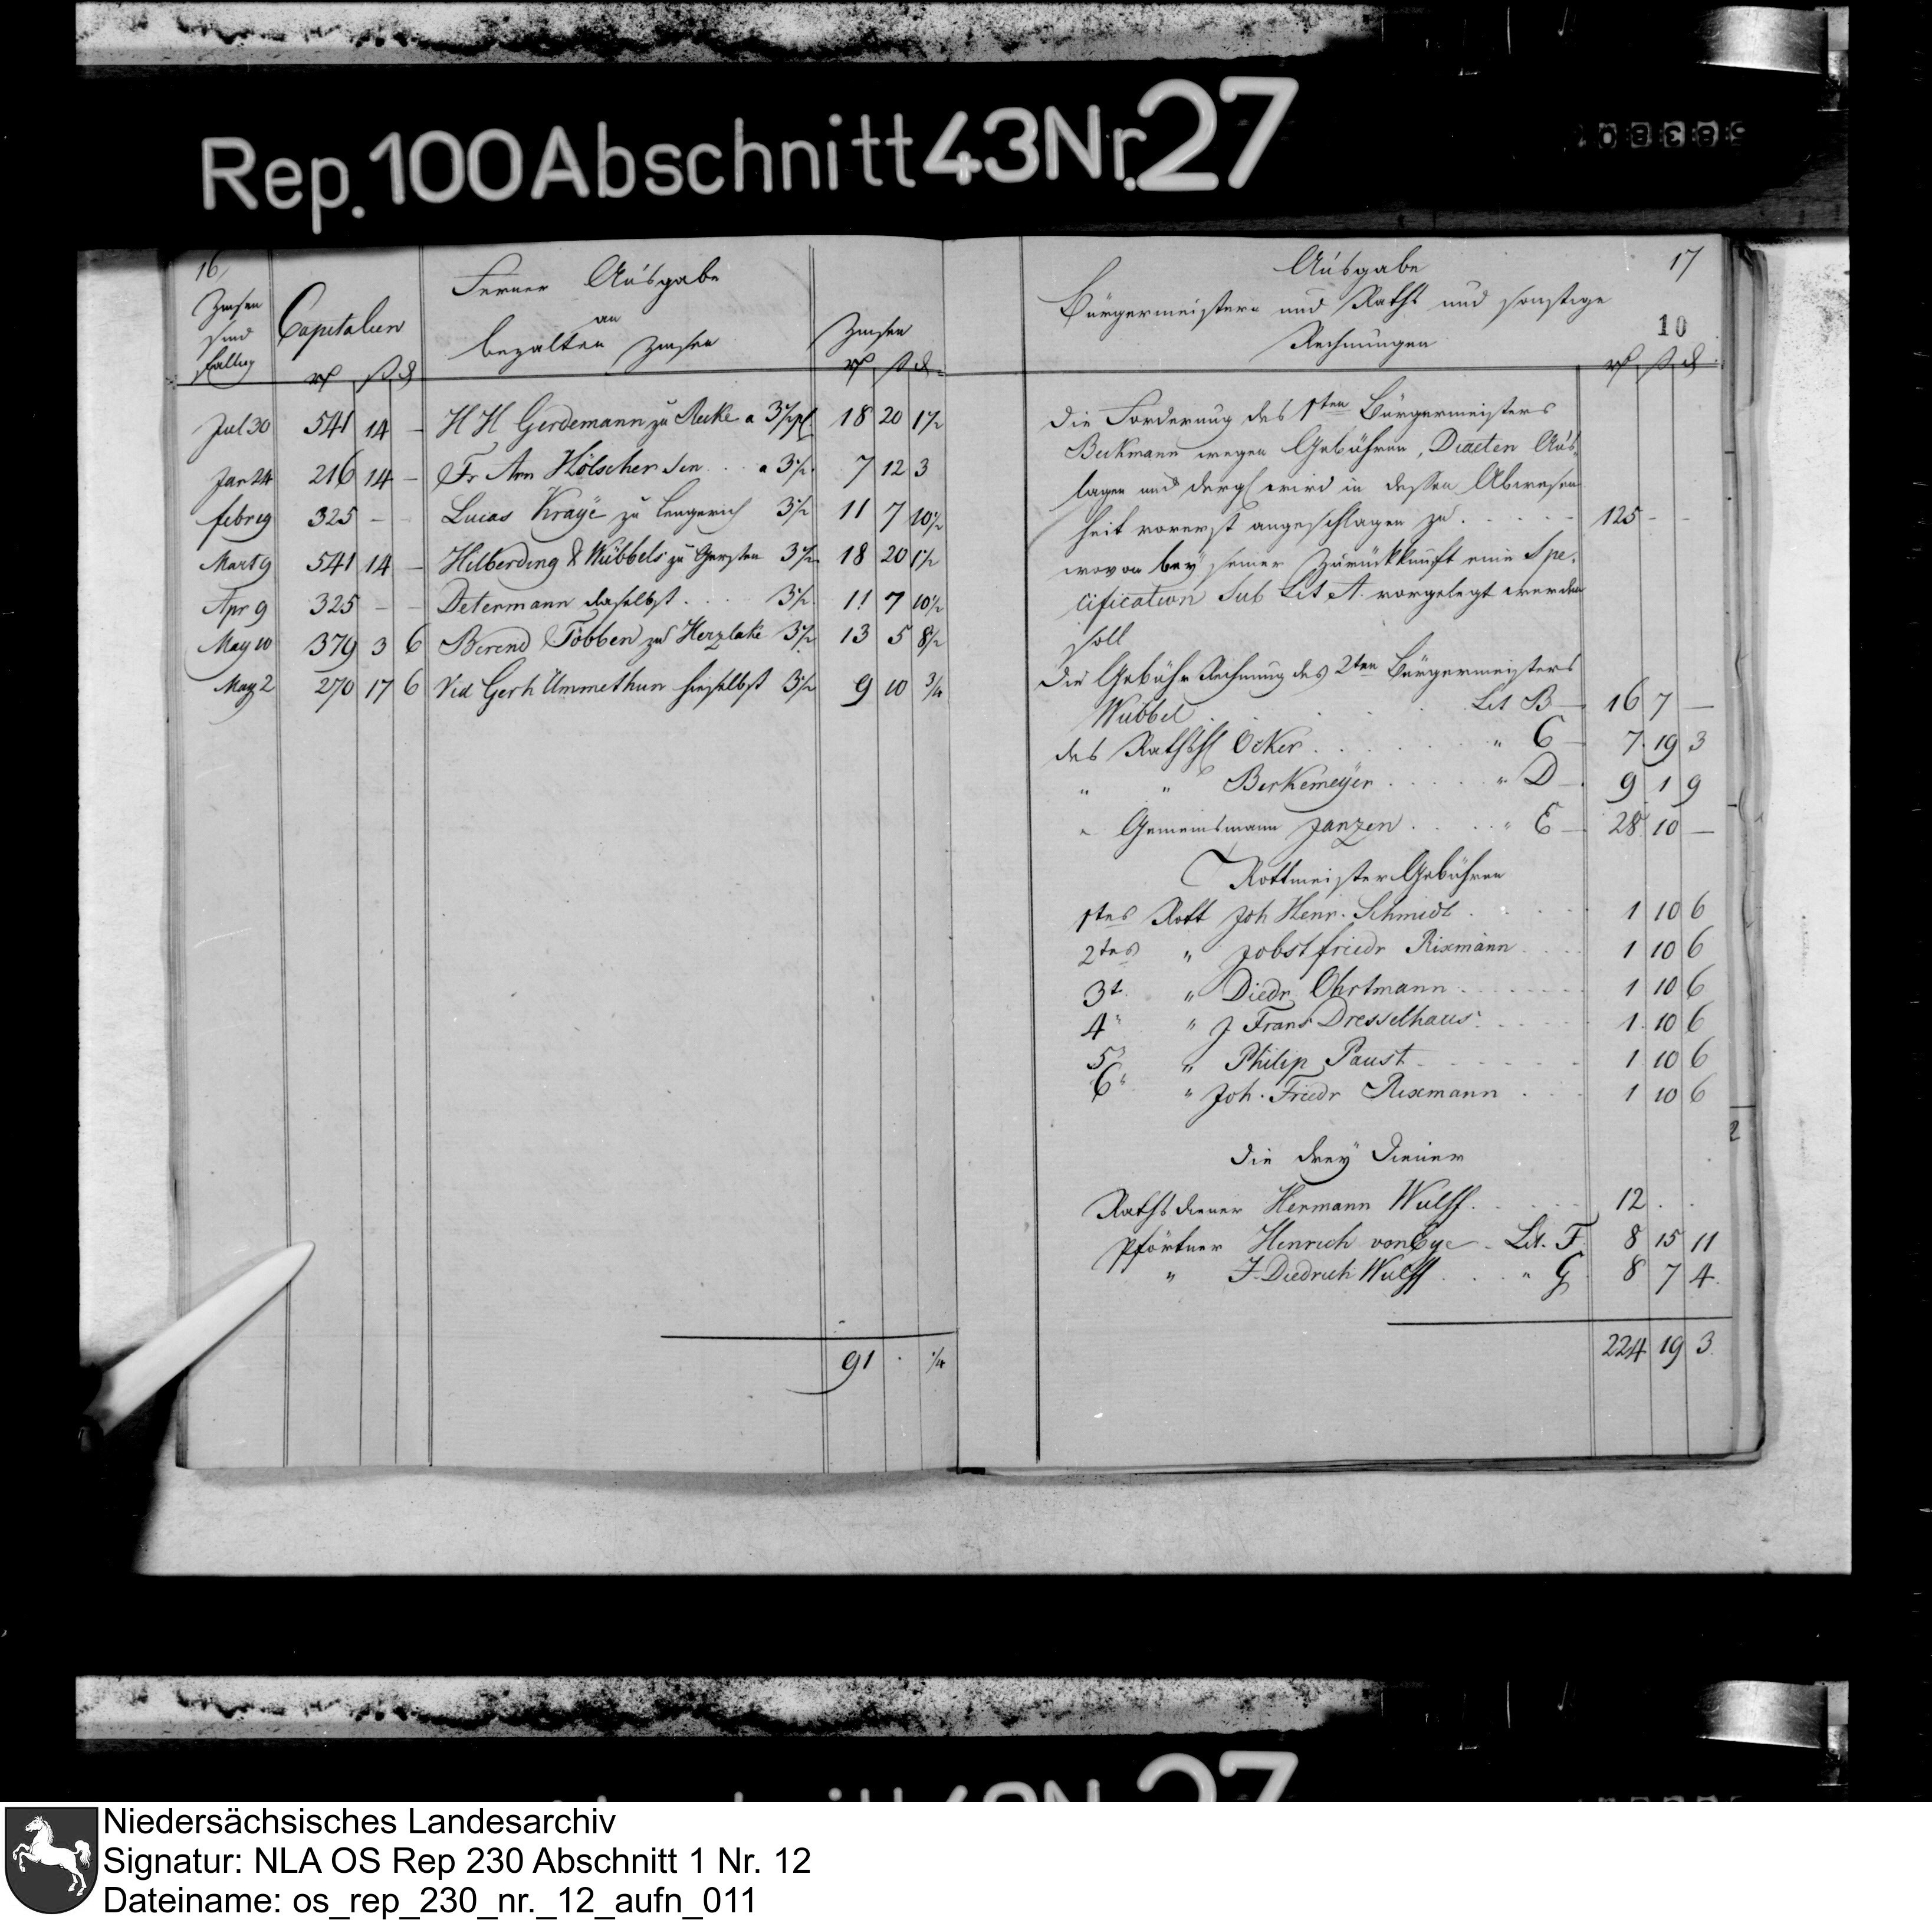 Rep. 100 Abschnitt 43 Nr. 27
16
Ferner Ausgabe
an
bezalten Zinsen
Zinsen sind fällig
Capitalien
Zinsen
rt ß d
rt ß d
Jul 30 541 14 – H H Gerdemann zu Recke a 3½ pC 18 20 1½
Jan 24 216 14 – Fr Arn Hölscher Sen. . . a 3½. 7 12 3
febr 19 325 – – Lucas Kraye zu Lengerich 3½ 11 7 10½
Mart 9 541 14 – Hilberding & Wübbels zu Gersten 3½ 18 20 1½
Apr 9 325 – – Determann daselbst . . . . 3½. 11 7 10½
May 10 379 3 6 Berend Többen zu Herzlake 3½ 13 5 8½
May 2 270 17 6 Vid Gerh Ummethun hieselbst 3½ 9 10 ¾
91 . ¼
Ausgabe 17
Bürgermeistern und Raths und sonstige
Rechnungen 10
rt ß d
Die Forderung des 1ten Bürgermeisters
Beckmann wegen Gebühren, Diaeten Aus
lagen und dergl wird in dessen Abwesen
heit vorerst angeschlagen zu . . . . 125 – –
wovon bey seiner Zurückkunft eine Spe.
cification Sub Lit A. vorgelegt werden
soll
Die Gebühr Rechnung des 2ten Bürgermeisters
Wübbel . . . Lit B – 16 7 –
des Rathshl Öcker . . . . . . " C – 7 19 3
" " Berkemeyer . . . . . " D – 9 1 9
" Gemeinsmann Janzen . . . . " E – 28 10 –
Rottmeister Gebühren
1tes Rott Joh Henr. Schmidt . . . . 1 10 6
2tes " Jobst friedr Rixmann . . . . 1 10 6
3t. " Diedr. Ohrtmann . . . . . . 1 10 6
4" " J Frans Dresselhaus . . . . . 1 10 6
5" " Philip Paust . . . . . . 1 10 6
6" " Joh. Friedr Rixmann . . . 1 10 6
Die drey Diener
Rathsdiener Hermann Wulff . . . . . 12 . .
Pförtner Henrich von Eye – Lit. F. 8 15 11
" J. Diedrich Wulff . . . . " G 8 7 4.
224 19 3.
Niedersächsisches Landesarchiv
Signatur: NLA OS Rep 230 Abschnitt 1 Nr. 12
Dateiname: os_rep_230_nr._12_aufn_011